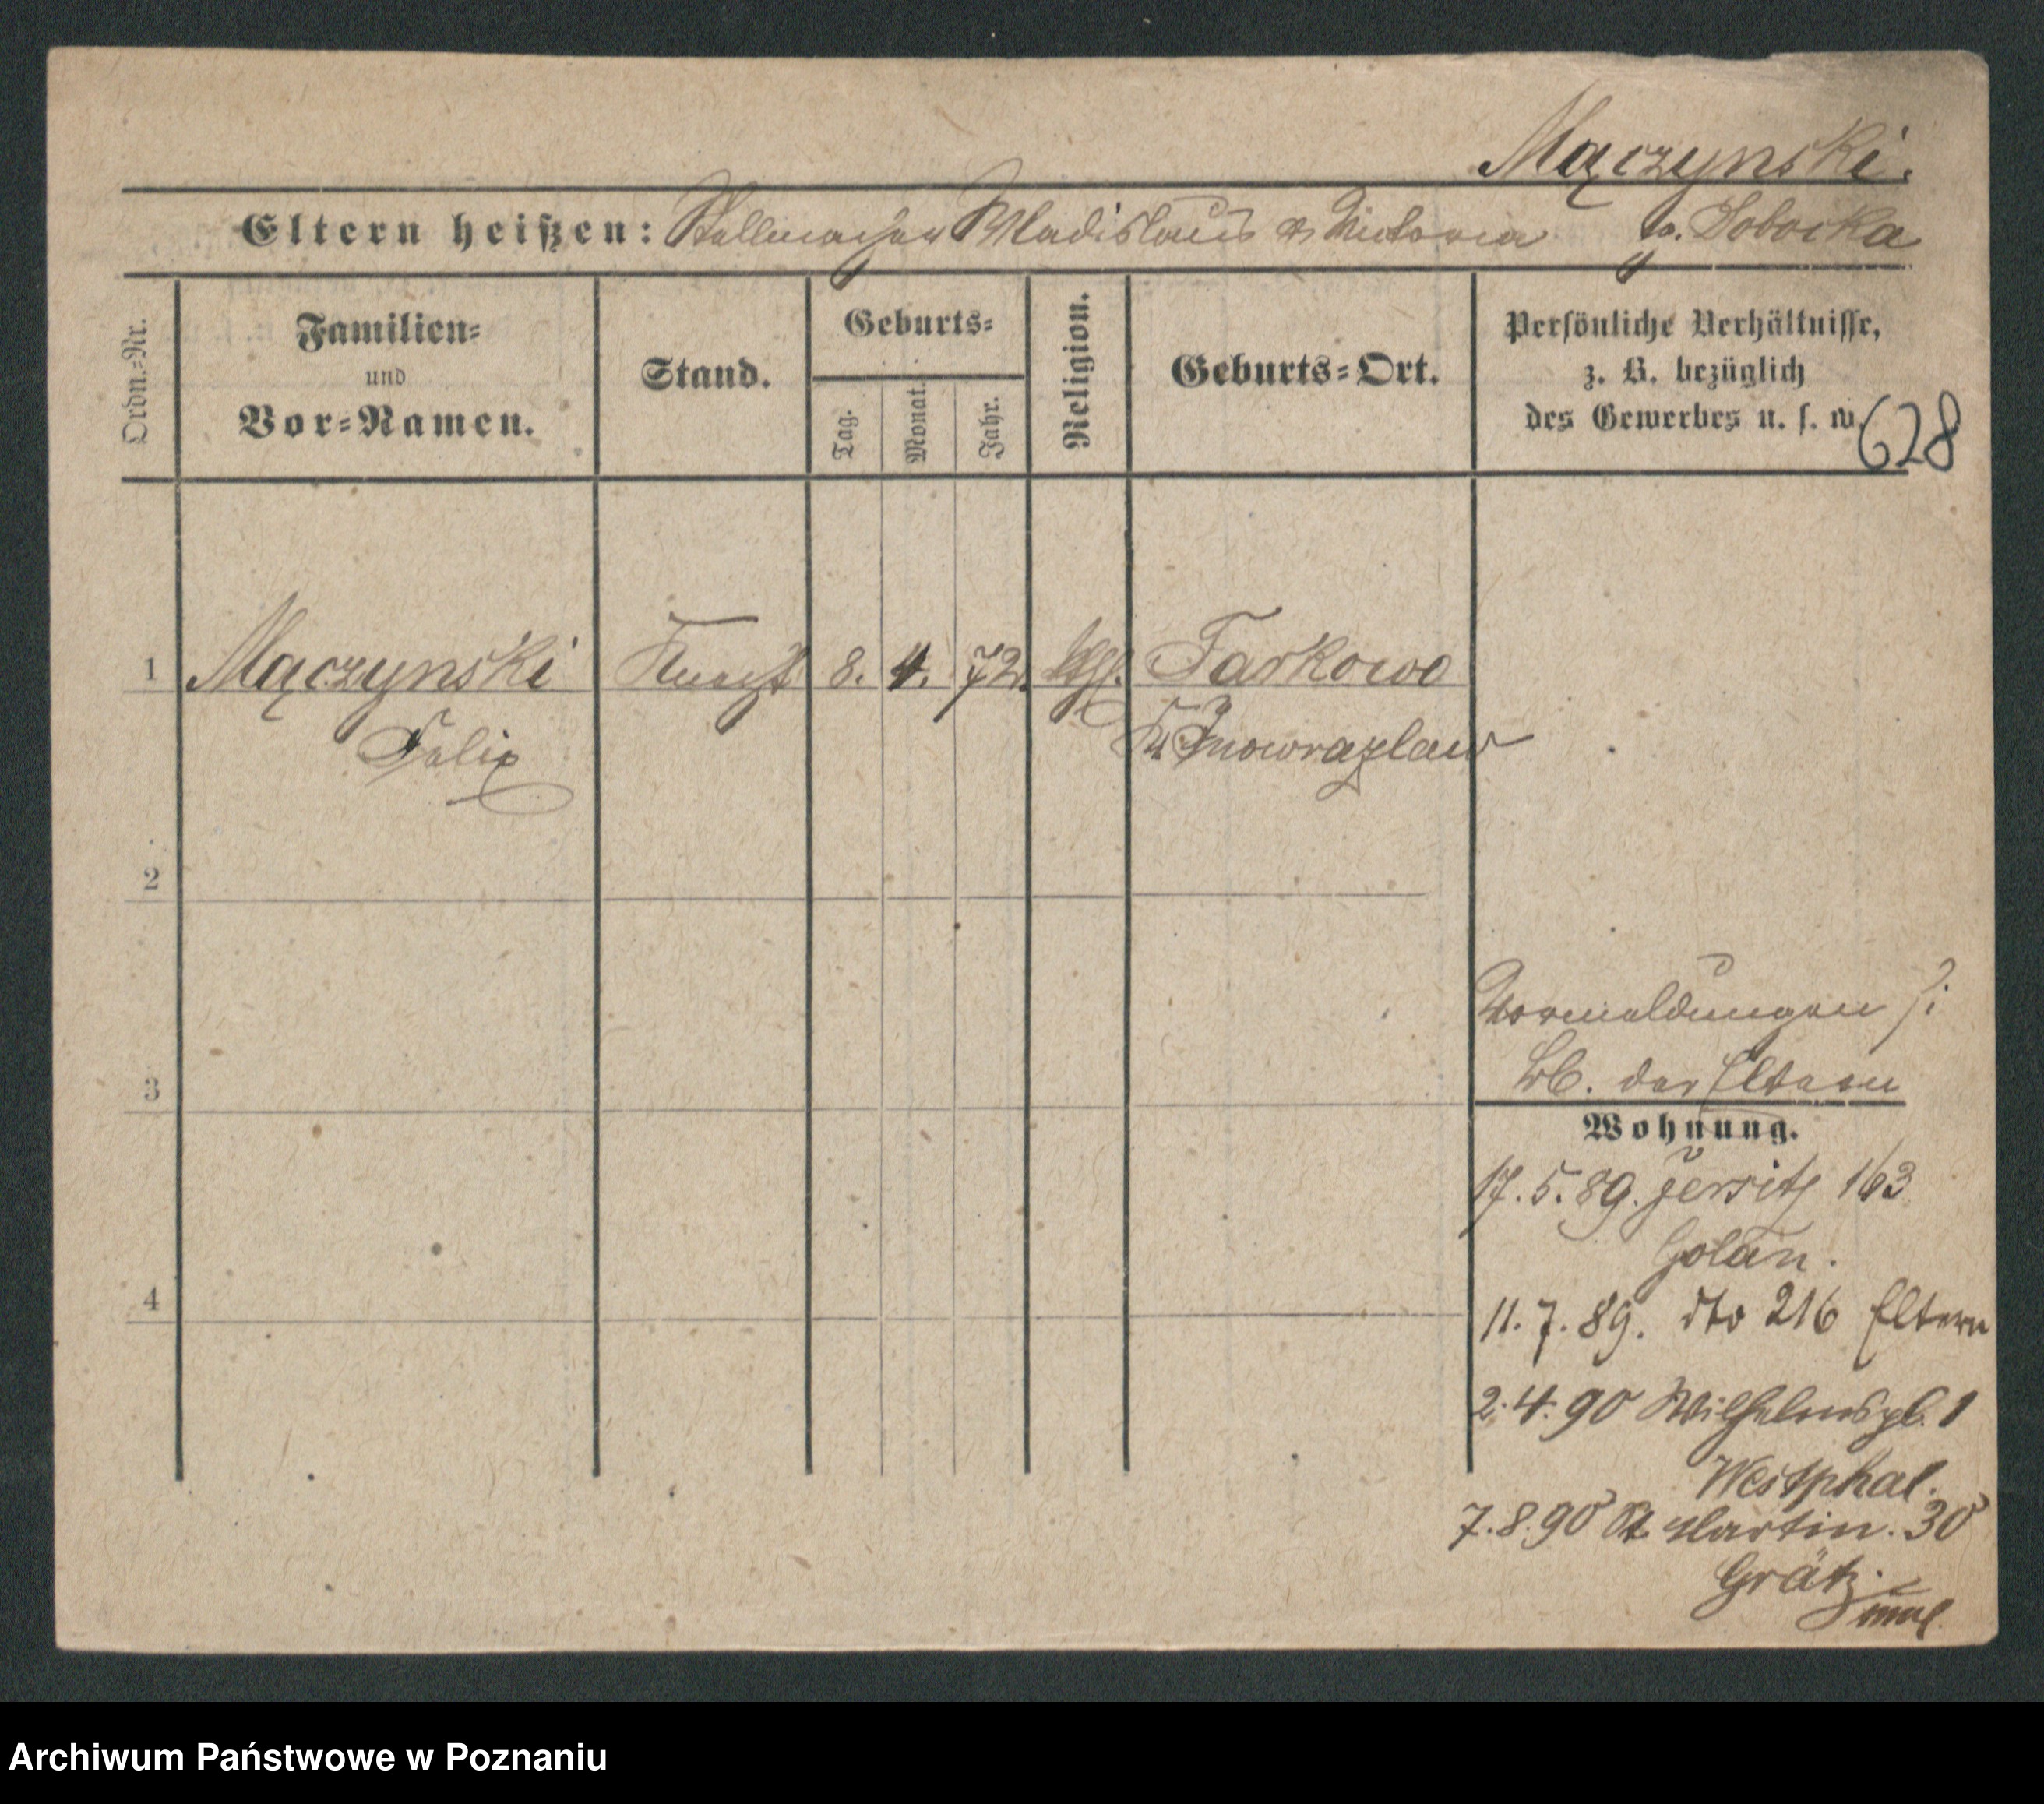 Mączynski.
Eltern heißen: Stellmacher Wladislaus & Victoria g. Sobocka
Ordn.-Nr.
Familien-
und
Vor-Namen.
Stand.
Geburts-
Tag.
Monat.
Jahr.
Religion.
Geburts-Ort.
Persönliche Verhältnisse,
z. B. bezüglich
des Gewerbes u. s. w.
628
1 Mączynski Knecht 8. 4. 72. kth. Tarkowo
Felix Kr Inowrazlaw
2
Vormeldungen s:
3 Bb. der Eltern
Wohnung.
17.5.89. Jersitz 163
Golan.
4 11.7.89. dto 216 Eltern
2.4.90 Wilhelmspl. 1
Westphal.
7.8.90 St Martin. 30
Grätz.
Archiwum Państwowe w Poznaniu